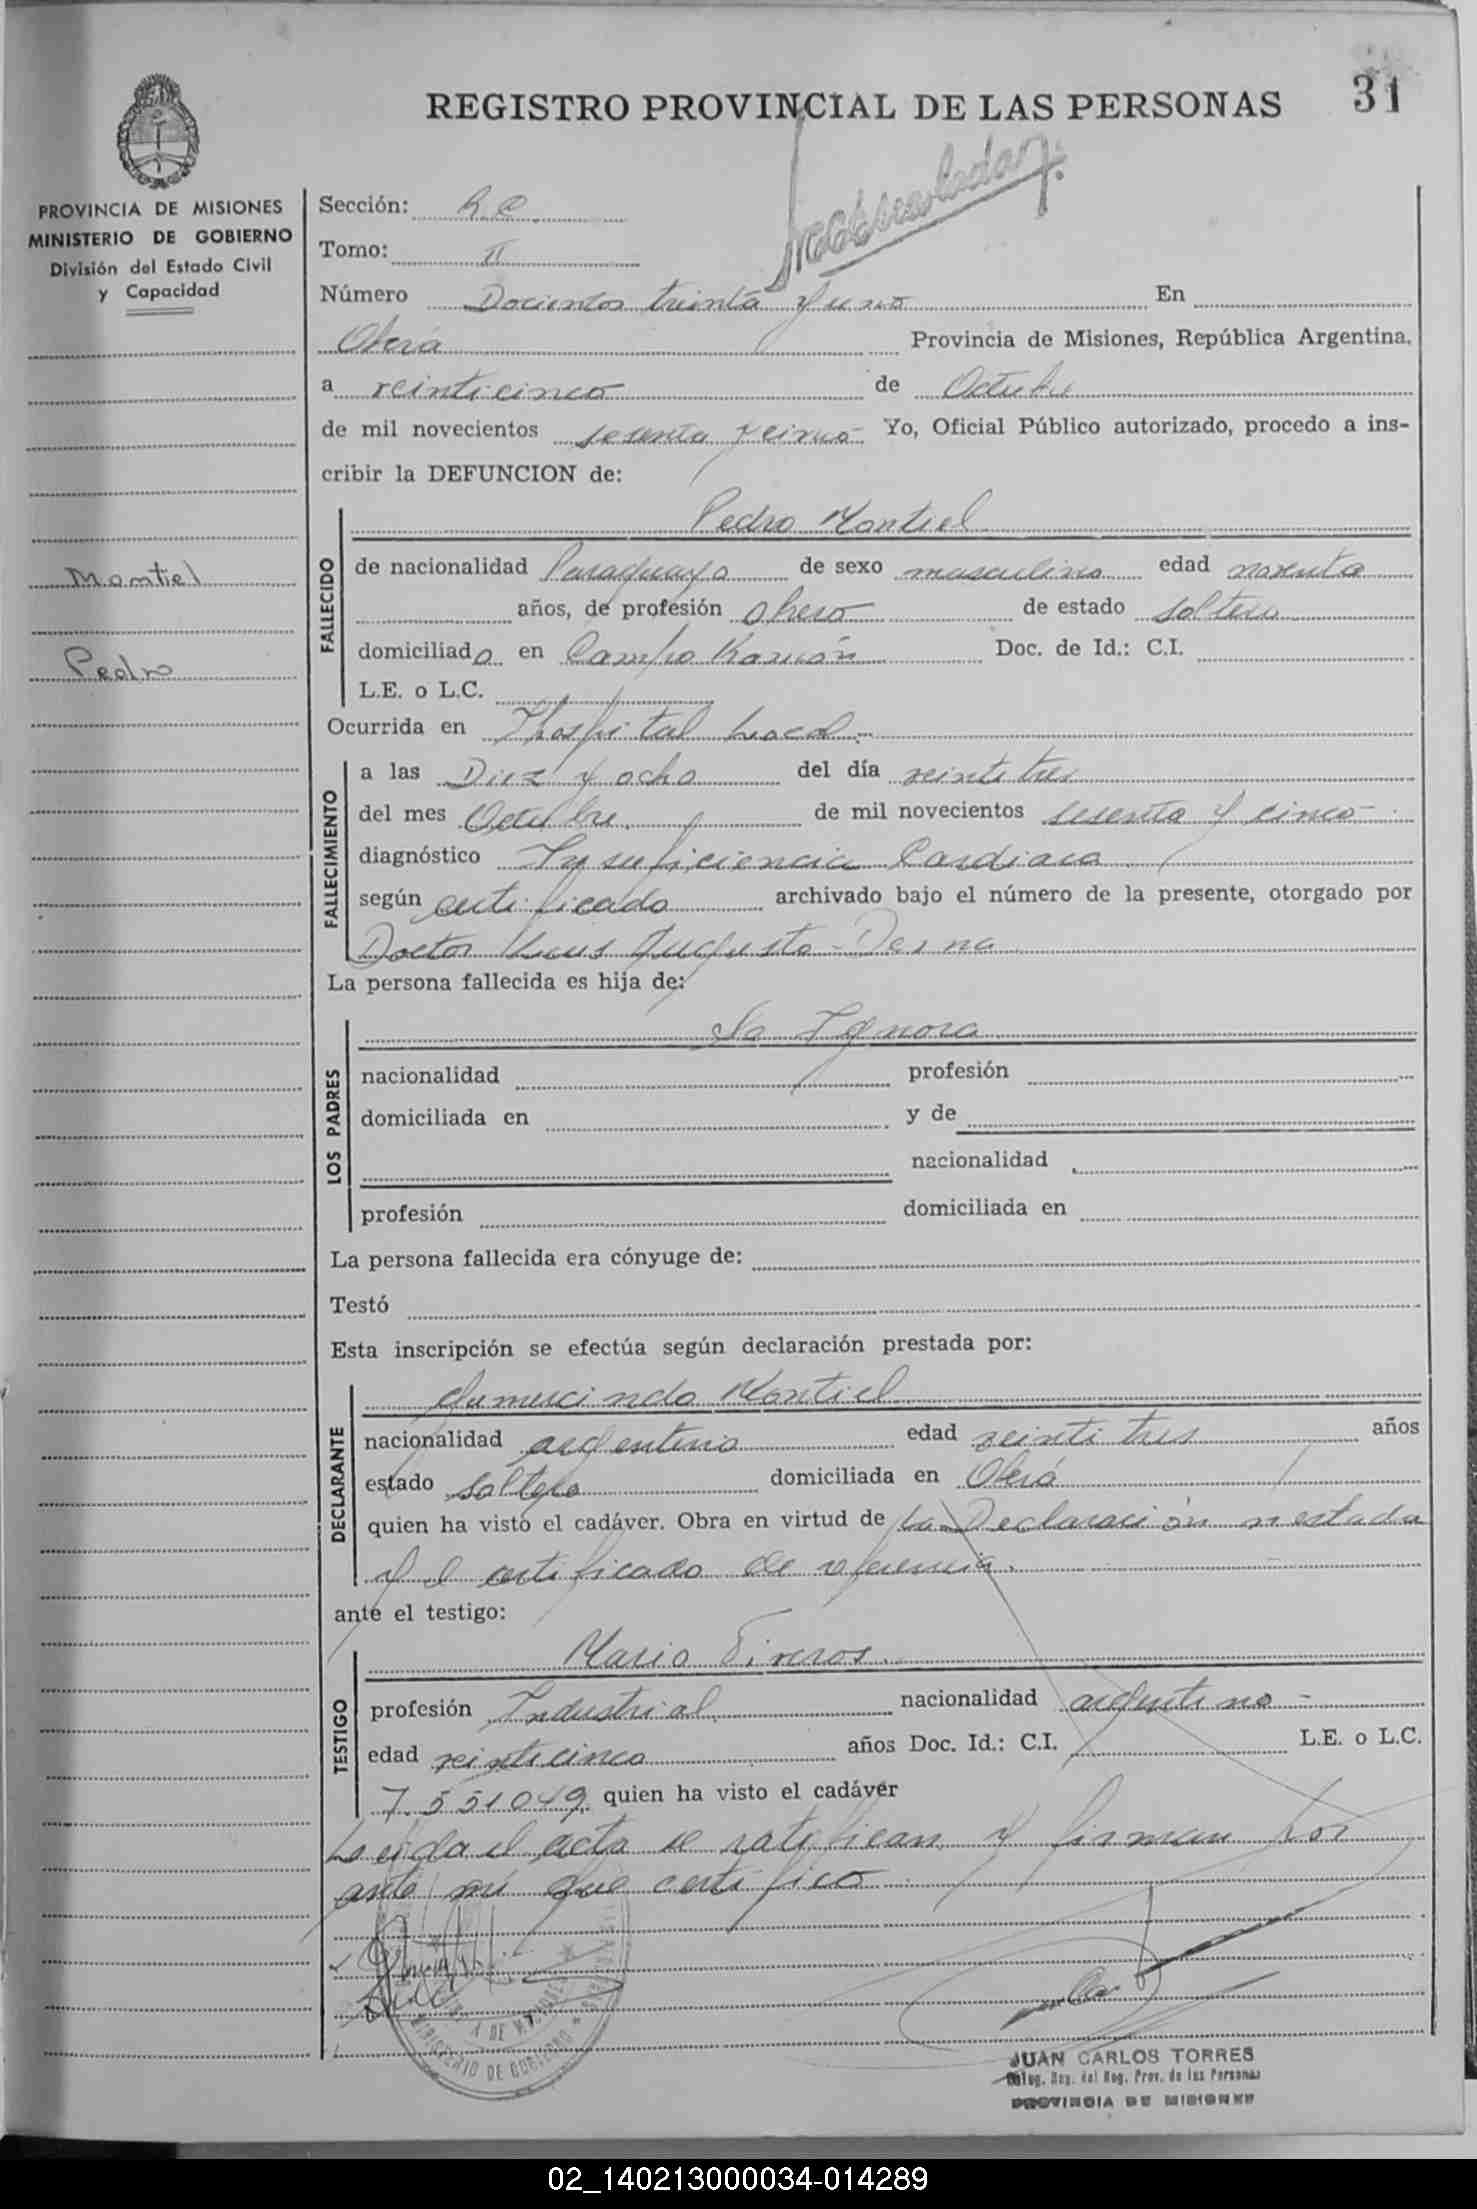 REGISTRO PROVINCIAL DE LAS PERSONAS
31
PROVINCIA DE MISIONES
MINISTERIO DE GOBIERNO
División del Estado Civil
y Capacidad
Sección:
Tomo: II
Número Docientos treinta y uno En
Oberá Provincia de Misiones, República Argentina,
a veinticinco de Octubre
de mil novecientos sesenta y cinco Yo, Oficial Público autorizado, procedo a ins-
cribir la DEFUNCION de:
Montiel
Pedro
FALLECIDO
Pedro Montiel
de nacionalidad Paraguayo de sexo masculino edad noventa
años, de profesión obrero de estado soltero
domiciliado en Campo Ramón Doc. de Id.: C.I.
L.E. o L.C.
Ocurrida en Hospital Local.
FALLECIMIENTO
a las Diez y ocho del día veintitres
del mes Octubre. de mil novecientos sesenta y cinco
diagnóstico Insuficiencia Cardiaca
según certificado archivado bajo el número de la presente, otorgado por
Doctor Luis Augusto Derna
La persona fallecida es hija de:
LOS PADRES
Se Ignora
nacionalidad profesión
domiciliada en y de
nacionalidad
profesión domiciliada en
La persona fallecida era cónyuge de:
Testó
Esta inscripción se efectúa según declaración prestada por:
DECLARANTE
Gumercindo Montiel
nacionalidad argentino edad veintitres años
estado soltero domiciliada en Oberá
quien ha visto el cadáver. Obra en virtud de la Declaración prestada
y el certificado de referencia.
ante el testigo:
TESTIGO
Mario Viveros
profesión Industrial nacionalidad argentino
edad veinticinco años Doc. Id.: C.I. L.E. o L.C.
7.551049 quien ha visto el cadáver
Leida el acta se ratifican y firman por
ante mi que certifico
MINISTERIO DE GOBIERNO
JUAN CARLOS TORRES
Deleg. Reg. del Reg. Prov. de las Personas
PROVINCIA DE MISIONES
02_140213000034-014289